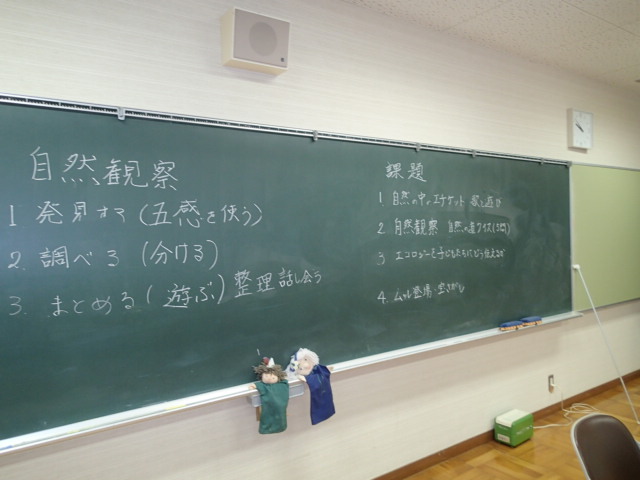 自然観察
1 発見する(五感を使う)
2. 調べる (分ける)
3. まとめる(遊ぶ)整理 話し合う
課題
1 自然の中の エチケット
2. 自然観察 自然の
3 エコロジーを子どもたちにどう伝えるか
4. 登場